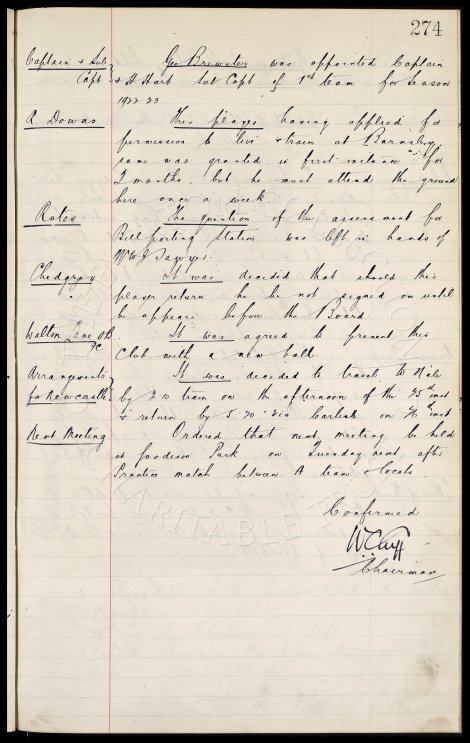 274
Captain & Sub Geo Brewster was appointed Captain
Capt & H Hart Sub Capt of 1st team for season
1922-23
R Downs This player having applied for
permission to live & train at Barnsley,
same was granted in first instance for
2 months, but he must attend the ground
here once a week.
Rates The question of the assessment for
Bill posting Station was left in hands of
Mr W J Sawyer.
Chedgzoy It was decided that should this
player return he be not signed on until
he appears before the Board.
Walton Lane OB It was agreed to present this
FC Club with a new ball.
Arrangements It was decided to travel to
for Newcastle by train on the afternoon of the 25th inst
& return by 5.20 via Carlisle on 26th inst
Next Meeting Ordered that next meeting be held
at Goodison Park on Tuesday next, after
Practice match between A team & locals.
CHARITABLE
Confirmed
W C Cuff
Chairman